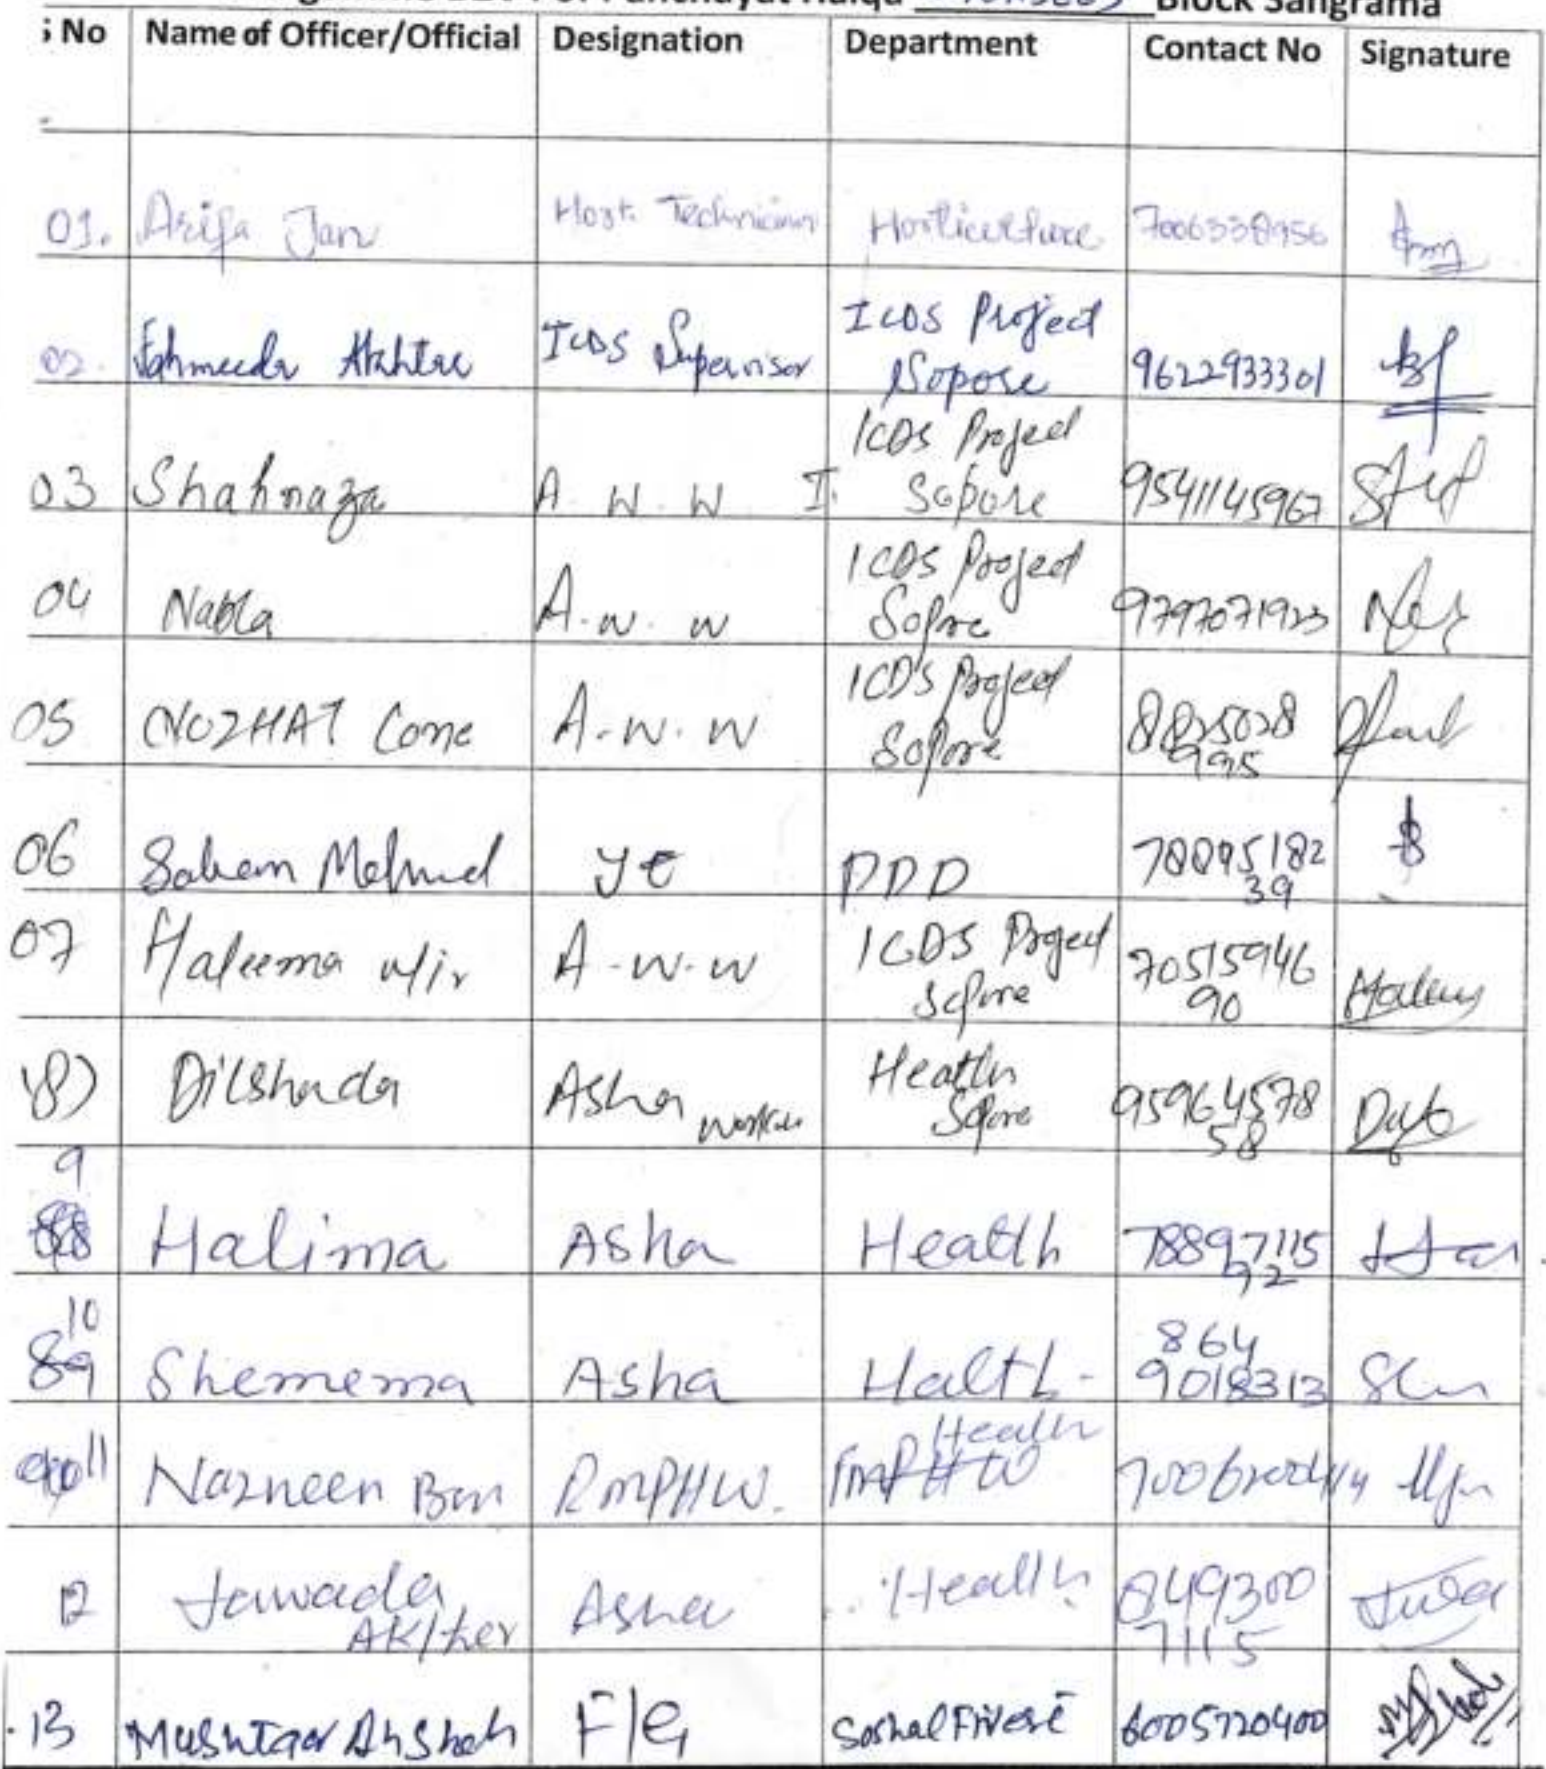 Block Sangrama
S No Name of Officer/Official Designation Department Contact No Signature
01. Arifa Jan Hort. Technician Horticulture
02. Fahmeeda Akhter ICDS Supervisor ICDS Project Sopore 9622933301
03 Shahnaza A.W.W ICDS Project Sopore 9541145967
04 Nabla A.W.W ICDS Project Sopore 9797071923
05 NOZHAT A.W.W ICDS Project Sopore 8825028
995
06 JE PDD 78895182
39
07 Haleema A.W.W ICDS Project Sopore 70515946
90
8) Dilshada Asha Health Sopore 95964578
58
9 Halima Asha Health 78897115
92
10 Shemema Asha Halth 864
9018313
11 Nazneen RMPHW. Health
12 Jawada Asha Health 849300
AKhter 7115
13 Mushtaq Ah Shah 6005720400